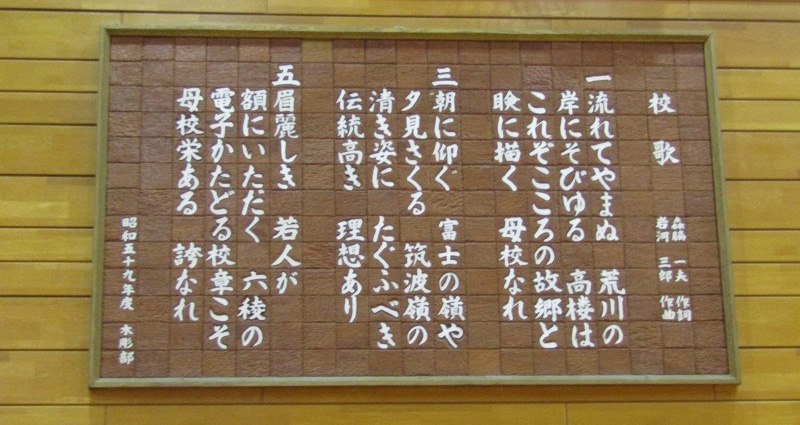 校歌
森脇 一夫 作詞
岩河 三郎 作曲
一 流れてやまぬ 荒川の
岸にそびゆる 高楼は
これぞこころの故郷と
瞼に描く 母校なれ
三 朝に仰ぐ 富士の嶺や
夕見さくる 筑波嶺の
清き姿に たぐふべき
伝統高き 理想あり
五 眉麗しき 若人が
額にいただく 六稜の
電子かたどる校章こそ
母校栄ある 誇なれ
昭和五十九年度 木彫部